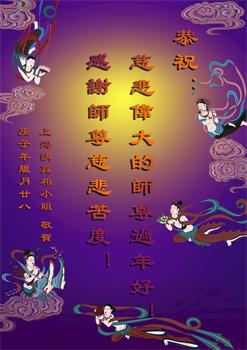 恭祝：
慈悲偉大的師尊過年好！
感謝師尊慈悲苦度！
上海講真相小組 敬賀
庚子年臘月廿八